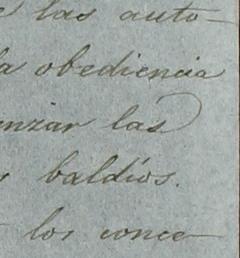 las auto-
la obediencia
nzar las
baldíos.
los conce-